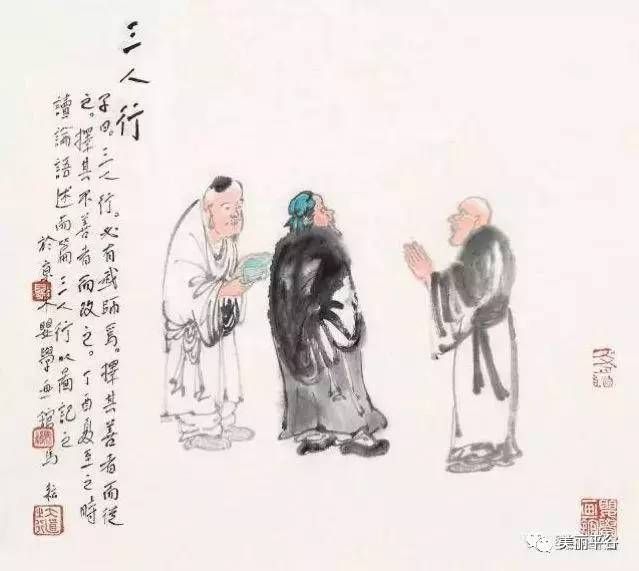 三人行
子曰。三人行。必有我師焉。擇其善者而從
之。擇其不善者而改之。丁酉夏至之時
讀論語述而篇三人行以圖記之
於京嬰學馬
美丽平谷